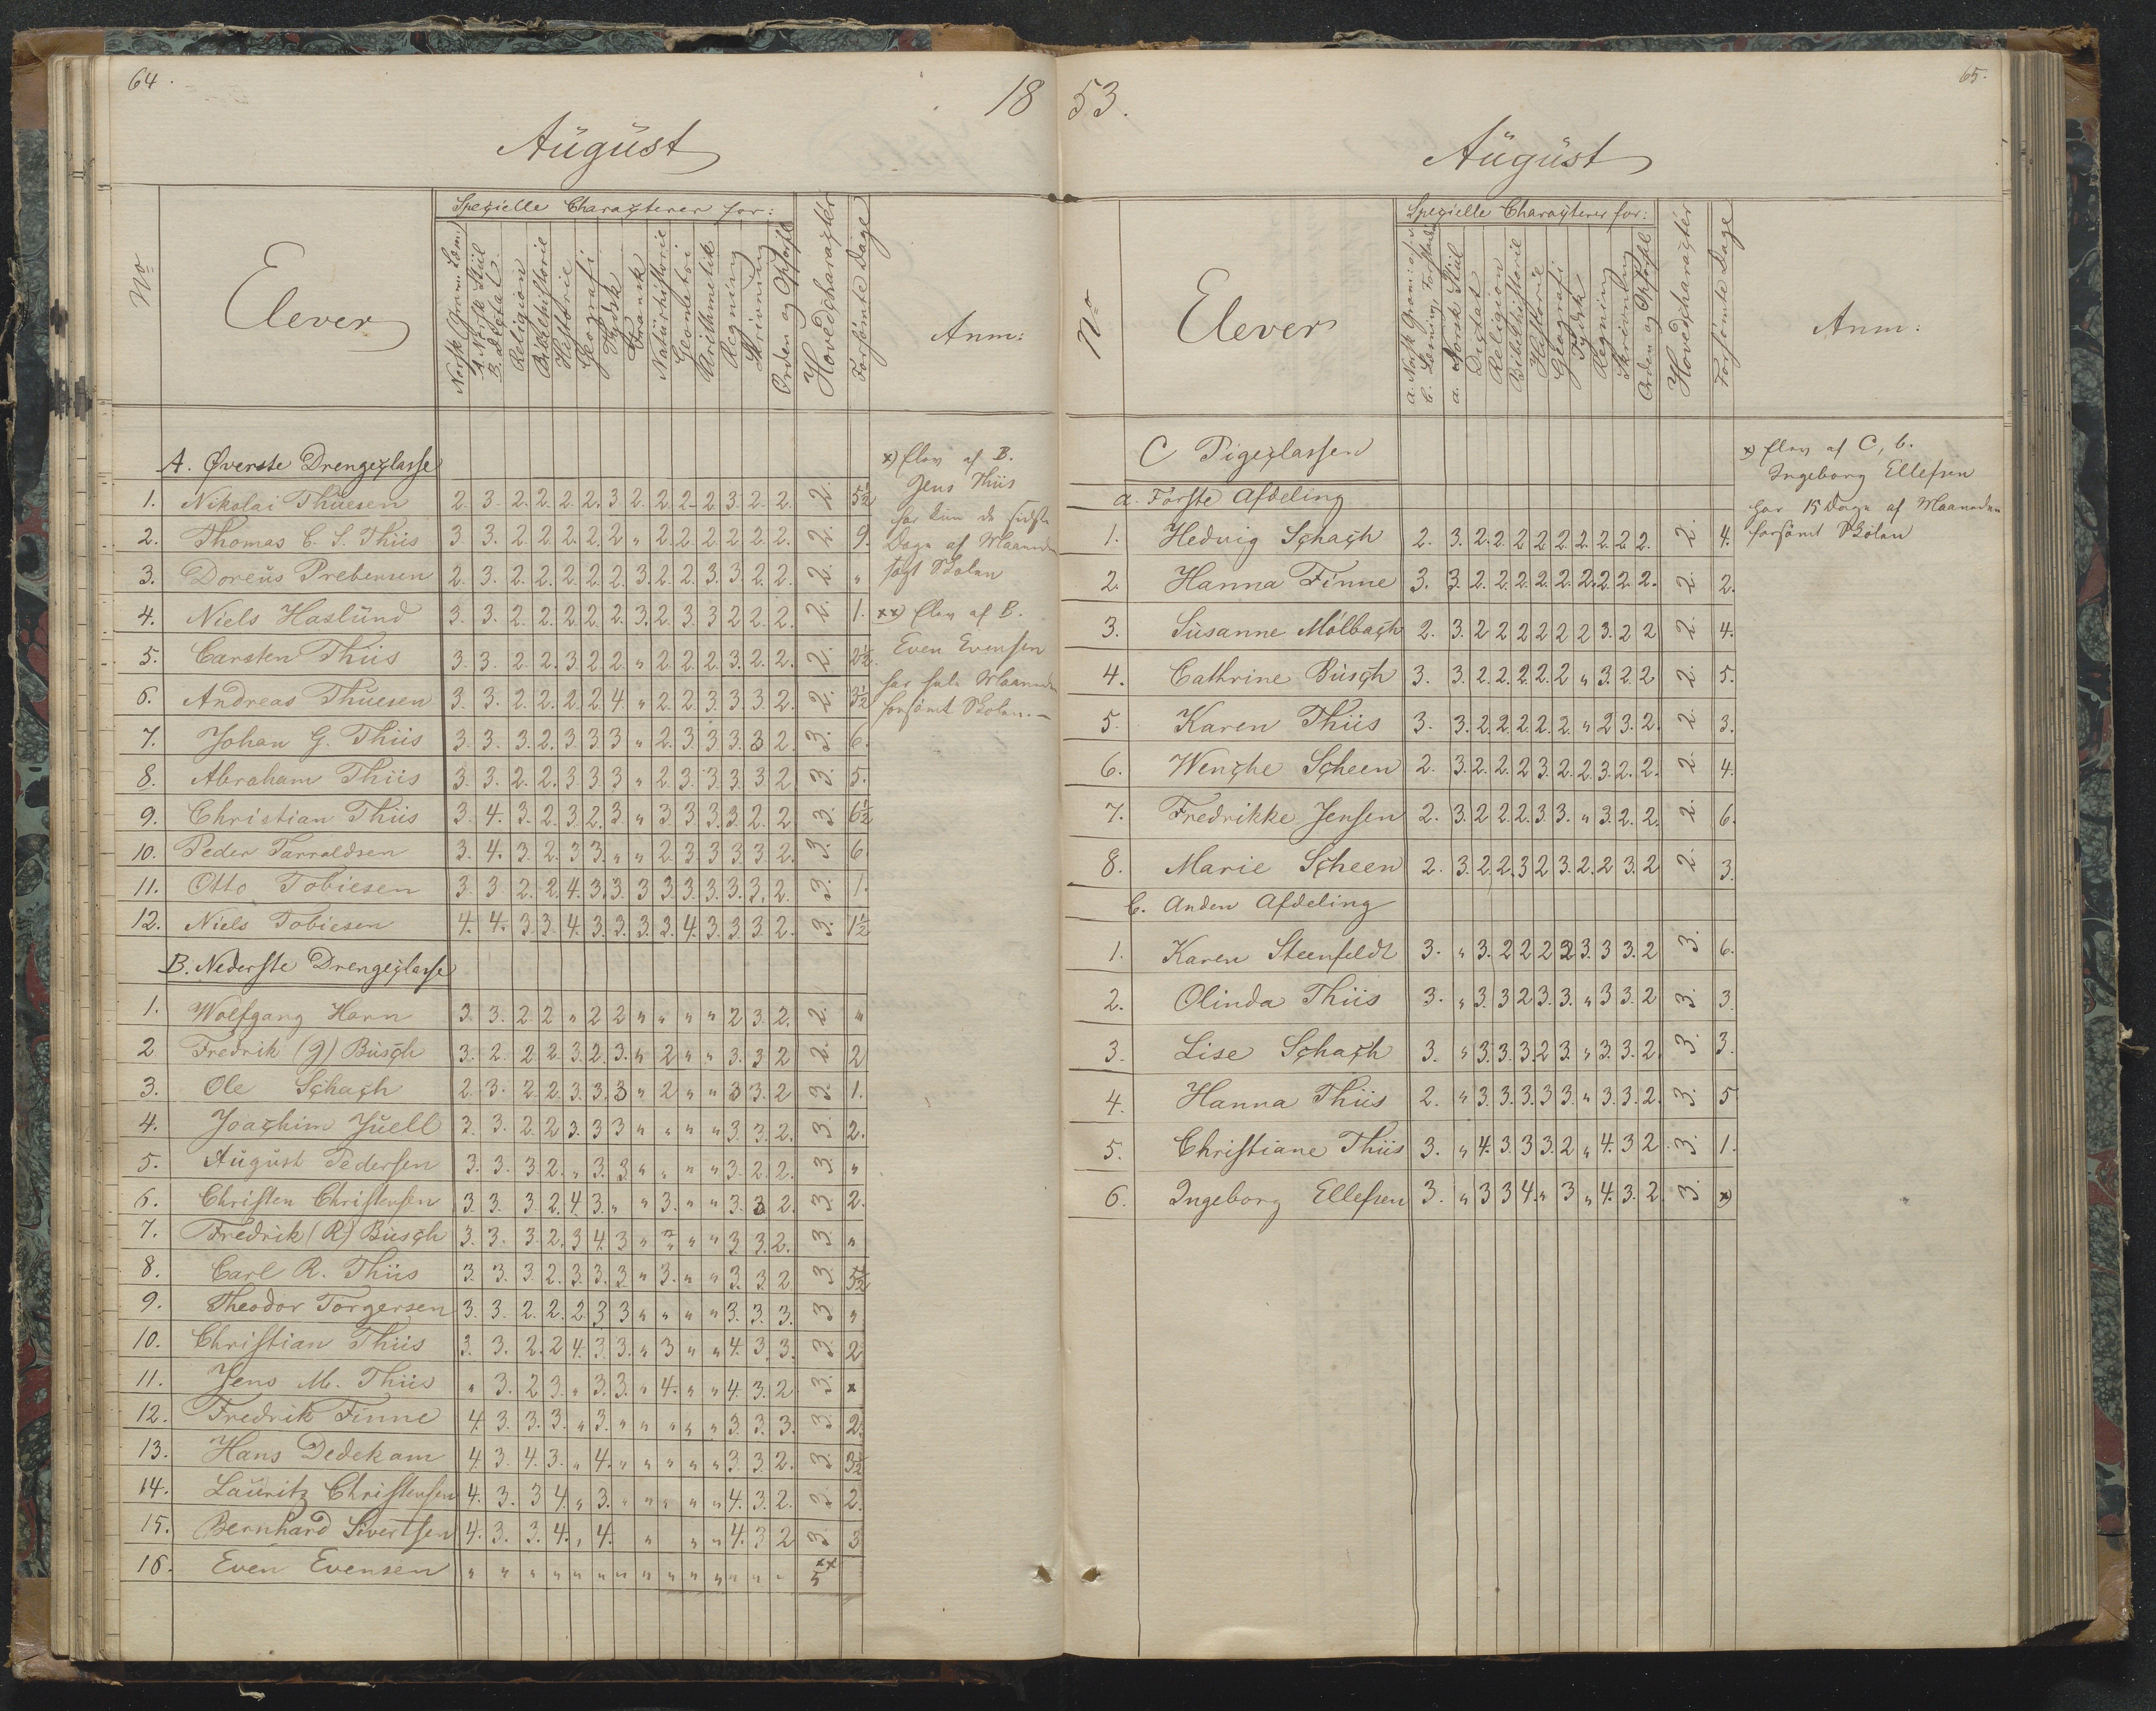 64.
18
August
No
Elever
Spezielle Characterer for:
Norsk Gram: Læsn.
A. Norsk Stiil
B. Dictat.
Religion
Bibelhistorie
Historie
Geografi
Tydsk
Fransk
Naturhistorie
Geometri
Arithmetik
Regning
Skrivning
Orden og Opførsel
Hovedcharacter
Forsømte Dage
Anm:
A. Øverste Drengeclasse
1. Nikolai Thuesen 2. 3. 2. 2. 2. 2. 3 2. 2. 2. 2 3. 2. 2. 2. 5½
2. Thomas C. S. Thiis 3. 3. 2. 2. 2. 2. 2 " 2. 2. 2. 2. 2. 2. 2. 9.
3. Doreus Prebensen 2. 3. 2. 2. 2. 2. 2. 3. 2. 2. 3. 3. 2. 2. 2. "
4. Niels Haslund 3. 3. 2. 2. 2. 2. 2. 3. 2. 3. 3 2 2. 2. 2. 1.
5. Carsten Thiis 3. 3. 2. 2. 3. 2. 2. " 2. 2. 2. 3. 2. 2. 2. 2½
6. Andreas Thuesen 3. 3. 2. 2. 2. 2. 4. " 2. 2. 3. 3. 3. 2. 2. 3½
7. Johan G. Thiis 3. 3. 3. 2. 3. 3. 3 " 2. 3. 3. 3. 3 2. 3. 6.
8. Abraham Thiis 3. 3. 2. 2. 3. 3. 3 " 2. 3. 3. 3. 3. 2. 3. 5.
9. Christian Thiis 3. 4. 3. 2. 3. 2. 3. " 3. 3. 3. 3. 2. 2. 3. 6½
10. Peder Tarraldsen 3. 4. 3. 2. 3 3. " " 2. 3. 3. 3. 3. 2. 3. 6.
11. Otto Tobiesen 3. 3 2. 2. 4. 3. 3. 3 3. 3. 3. 3. 3. 2. 3. 1.
12. Niels Tobiesen 4. 4. 3. 3. 4. 3. 3. 3. 3. 4. 3. 3. 3. 2. 3. 1½
B. Nederste Drengeclasse
1. Wolfgang Harn 3. 3. 2. 2 " 2 2 " " " " 2 3. 2. 2. "
2 Fredrik (G) Busch 3. 2. 2. 2. 3. 2. 3. " 2 " " 3. 3 2 2. 2
3. Ole Schach 2. 3. 2. 2. 3. 3. 3 " 2 " " 3 3. 2 3. 1.
4. Joachim Juell 3. 3. 2. 2 3. 3 3 " " " " 3. 3. 2. 3. 2.
5. August Pedersen 3. 3. 3. 2. " 3. 3. " " " " 3. 2. 2. 3. "
6. Christen Christensen 3. 3. 3. 2. 4. 3. " " 3. " " 3. 3 2. 3. 2.
7. Fredrik (R) Busch 3. 3. 3. 2. 3 4. 3 " " " " 3. 3. 2. 3. "
8. Carl R. Thiis 3. 3. 3. 2. 3. 3. 3. " 3. " " 3. 3. 2 3. 5½
9. Theodor Torgersen 3. 3. 2. 2. 2. 3. 3 " " " " 3. 3. 3. 3 "
10. Christian Thiis 3. 3. 2. 2 4. 3. 3. " 3 " " 4. 3. 3. 3. 2
11. Jens M. Thiis " 3. 2. 3. " 3. 3. " 4. " " 4. 3. 2. 3. x
12. Fredrik Finne 4. 3. 3. 3. " 3. " " " " " 3. 3. 3. 3. 2.
13. Hans Dedekam 4. 3. 4. 3. " 4. " " " " " 3. 3. 2. 3. 3½
14. Lauritz Christensen 4. 3. 3 4. " 3. " " " " " 4. 3. 2. 3. 2.
15. Bernhard Sivertsen 4. 3. 3. 4. " 4. " " " 4. 3 2 3. 3
16. Even Evensen " " " " " " " " " " " " " " 5 xx
x) Elev af B.
Jens Thiis
har kun de sidste
Dage af Maaneden
søgt Skolen
xx) Elev af B.
Even Evensen
har hele Maaneden
forsømt Skolen. —
53.
65.
August
No
Elever
Spezielle Characterer for:
a. Norsk Gram:
b. Læsning, Forstand
a. Norsk Stiil
Dictat
Religion
Bibelhistorie
Historie
Geografi
Tydsk
Regning
Skrivning
Orden og Opførsel
Hovedcharacter
Forsømte Dage
Anm:
C Pigeclassen
a. Første Afdeling
1. Hedvig Schach 2. 3. 2. 2. 2 2 2. 2. 2. 2 2. 2. 4.
2. Hanna Finne 3. 3. 2. 2. 2. 2. 2. 2. 2. 2. 2. 2. 2.
3. Susanne Mölbach 2. 3. 2 2 2 2 2 2 3. 2 2 2. 4.
4. Cathrine Busch 3. 3. 2. 2. 2. 2. 2 " 3. 2. 2 2. 5.
5. Karen Thiis 3. 3. 2. 2. 2. 2. 2. " 2 3. 2. 2. 3.
6. Wenche Scheen 2. 3. 2. 2. 2 3. 2. 2. 3. 2. 2. 2. 4.
7. Fredrikke Jensen 2. 3. 2 2. 2. 3. 3. " 3. 2. 2. 2. 6.
8. Marie Scheen 2. 3. 2. 2. 3 2 3. 2. 2 3. 2 2. 3.
b. Anden Afdeling
1. Karen Steenfeldt 3. " 3. 2 2 2 2 3. 3 3. 2 3. 6.
2. Olinda Thiis 3. " 3. 3 2 3. 3. " 3 3. 2 3. 3.
3. Lise Schach 3. " 3. 3. 3. 2 3. " 3. 3. 2. 3. 3.
4. Hanna Thiis 2. " 3. 3. 3. 3 3. " 3. 3. 2. 3. 5
5. Christiane Thiis 3. " 4. 3. 3 3. 2 " 4. 3 2 3. 1.
6. Ingeborg Ellefsen 3. " 3 3 4. " 3 " 4. 3. 2. 3. x)
x) Elev af C, b.
Ingeborg Ellefsen
har 15 Dage af Maaneden
forsømt Skolen